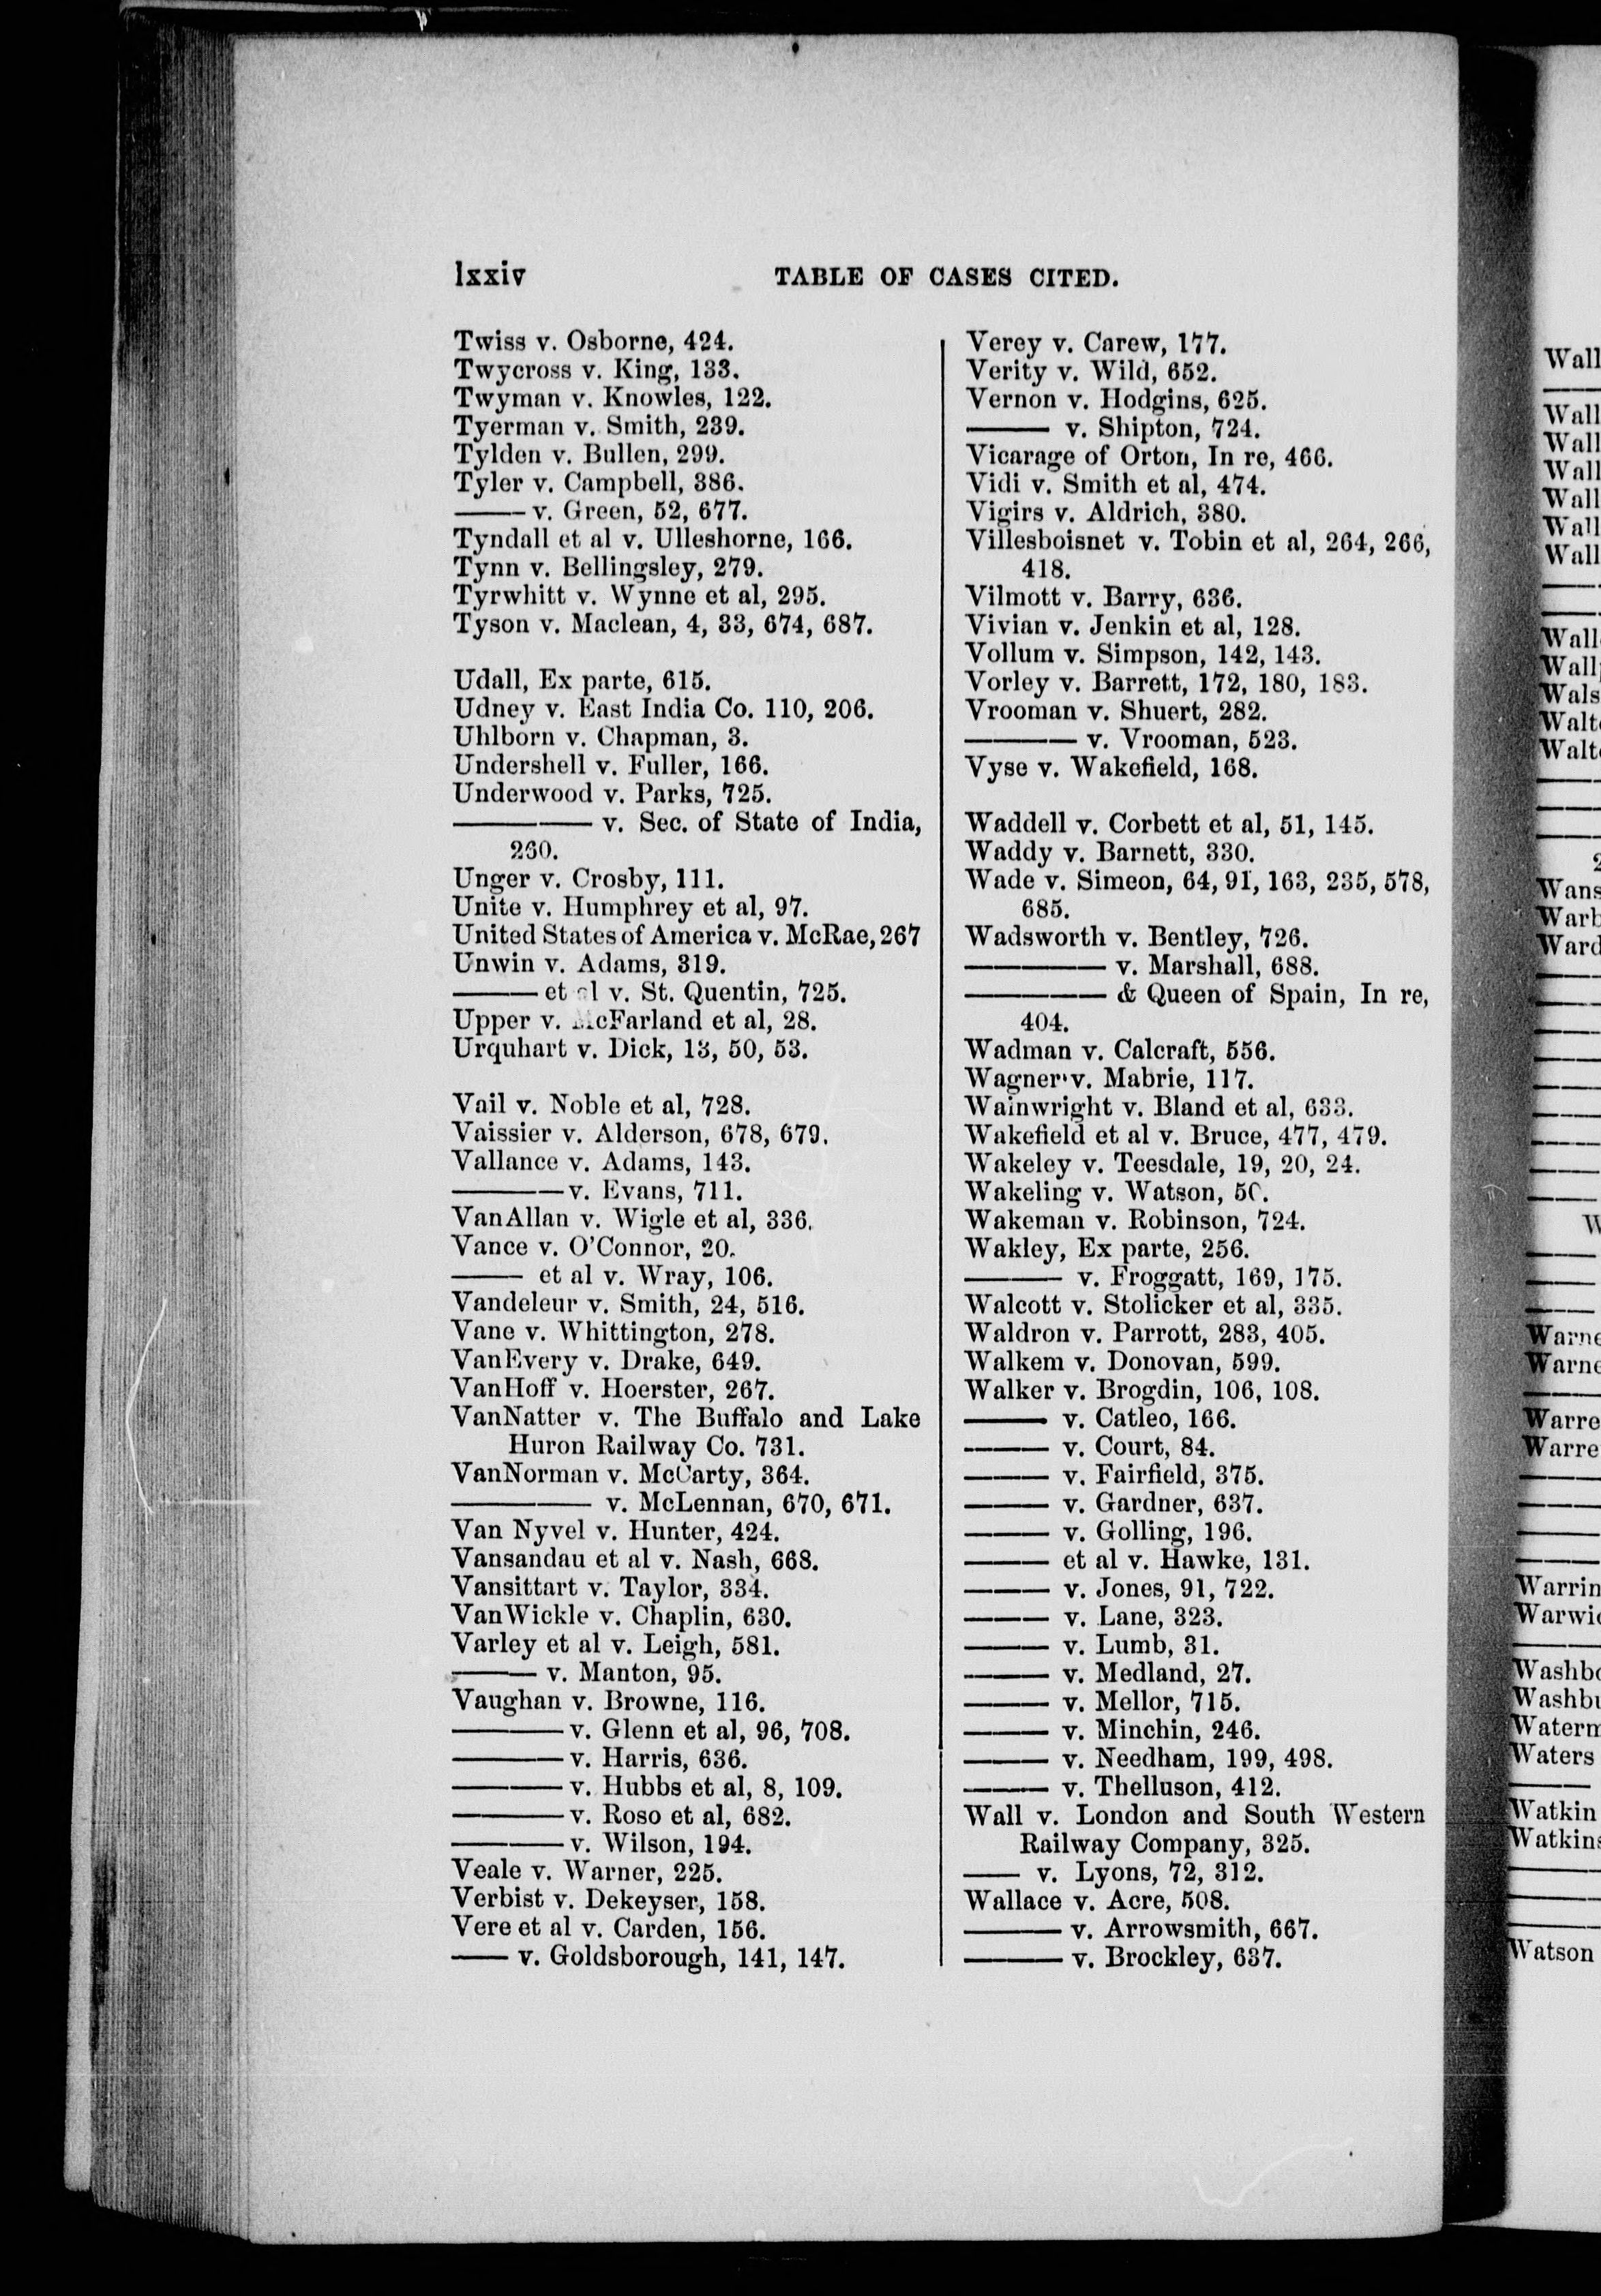 lxxiv
TABLE OF CASES CITED.
Twiss v. Osborne, 424.
Twycross v. King, 133.
Twyman v. Knowles, 122.
Tyerman v. Smith, 239.
Tylden v. Bullen, 299.
Tyler v. Campbell, 386.
——— v. Green, 52, 677.
Tyndall et al v. Ulleshorne, 166.
Tynn v. Bellingsley, 279.
Tyrwhitt v. Wynne et al, 295.
Tyson v. Maclean, 4, 33, 674, 687.
Udall, Ex parte, 615.
Udney v. East India Co. 110, 206.
Uhlborn v. Chapman, 3.
Undershell v. Fuller, 166.
Underwood v. Parks, 725.
————— v. Sec. of State of India,
260.
Unger v. Crosby, 111.
Unite v. Humphrey et al, 97.
United States of America v. McRae, 267
Unwin v. Adams, 319.
——— et al v. St. Quentin, 725.
Upper v. McFarland et al, 28.
Urquhart v. Dick, 13, 50, 53.
Vail v. Noble et al, 728.
Vaissier v. Alderson, 678, 679.
Vallance v. Adams, 143.
———— v. Evans, 711.
VanAllan v. Wigle et al, 336.
Vance v. O'Connor, 20.
——— et al v. Wray, 106.
Vandeleur v. Smith, 24, 516.
Vane v. Whittington, 278.
VanEvery v. Drake, 649.
VanHoff v. Hoerster, 267.
VanNatter v. The Buffalo and Lake
Huron Railway Co. 731.
VanNorman v. McCarty, 364.
————— v. McLennan, 670, 671.
Van Nyvel v. Hunter, 424.
Vansandau et al v. Nash, 668.
Vansittart v. Taylor, 334.
VanWickle v. Chaplin, 630.
Varley et al v. Leigh, 581.
——— v. Manton, 95.
Vaughan v. Browne, 116.
———— v. Glenn et al, 96, 708.
———— v. Harris, 636.
———— v. Hubbs et al, 8, 109.
———— v. Roso et al, 682.
———— v. Wilson, 194.
Veale v. Warner, 225.
Verbist v. Dekeyser, 158.
Vere et al v. Carden, 156.
—— v. Goldsborough, 141, 147.
Verey v. Carew, 177.
Verity v. Wild, 652.
Vernon v. Hodgins, 625.
——— v. Shipton, 724.
Vicarage of Orton, In re, 466.
Vidi v. Smith et al, 474.
Vigirs v. Aldrich, 380.
Villesboisnet v. Tobin et al, 264, 266,
418.
Vilmott v. Barry, 636.
Vivian v. Jenkin et al, 128.
Vollum v. Simpson, 142, 143.
Vorley v. Barrett, 172, 180, 183.
Vrooman v. Shuert, 282.
———— v. Vrooman, 523.
Vyse v. Wakefield, 168.
Waddell v. Corbett et al, 51, 145.
Waddy v. Barnett, 330.
Wade v. Simeon, 64, 91, 163, 235, 578,
685.
Wadsworth v. Bentley, 726.
————— v. Marshall, 688.
————— & Queen of Spain, In re,
404.
Wadman v. Calcraft, 556.
Wagner v. Mabrie, 117.
Wainwright v. Bland et al, 633.
Wakefield et al v. Bruce, 477, 479.
Wakeley v. Teesdale, 19, 20, 24.
Wakeling v. Watson,
Wakeman v. Robinson, 724.
Wakley, Ex parte, 256.
——— v. Froggatt, 169, 175.
Walcott v. Stolicker et al, 335.
Waldron v. Parrott, 283, 405.
Walkem v. Donovan, 599.
Walker v. Brogdin, 106, 108.
——— v. Catleo, 166.
——— v. Court, 84.
——— v. Fairfield, 375.
——— v. Gardner, 637.
——— v. Golling, 196.
——— et al v. Hawke, 131.
——— v. Jones, 91, 722.
——— v. Lane, 323.
——— v. Lumb, 31.
——— v. Medland, 27.
——— v. Mellor, 715.
——— v. Minchin, 246.
——— v. Needham, 199, 498.
——— v. Thelluson, 412.
Wall v. London and South Western
Railway Company, 325.
—— v. Lyons, 72, 312.
Wallace v. Acre, 508.
——— v. Arrowsmith, 667.
——— v. Brockley, 637.